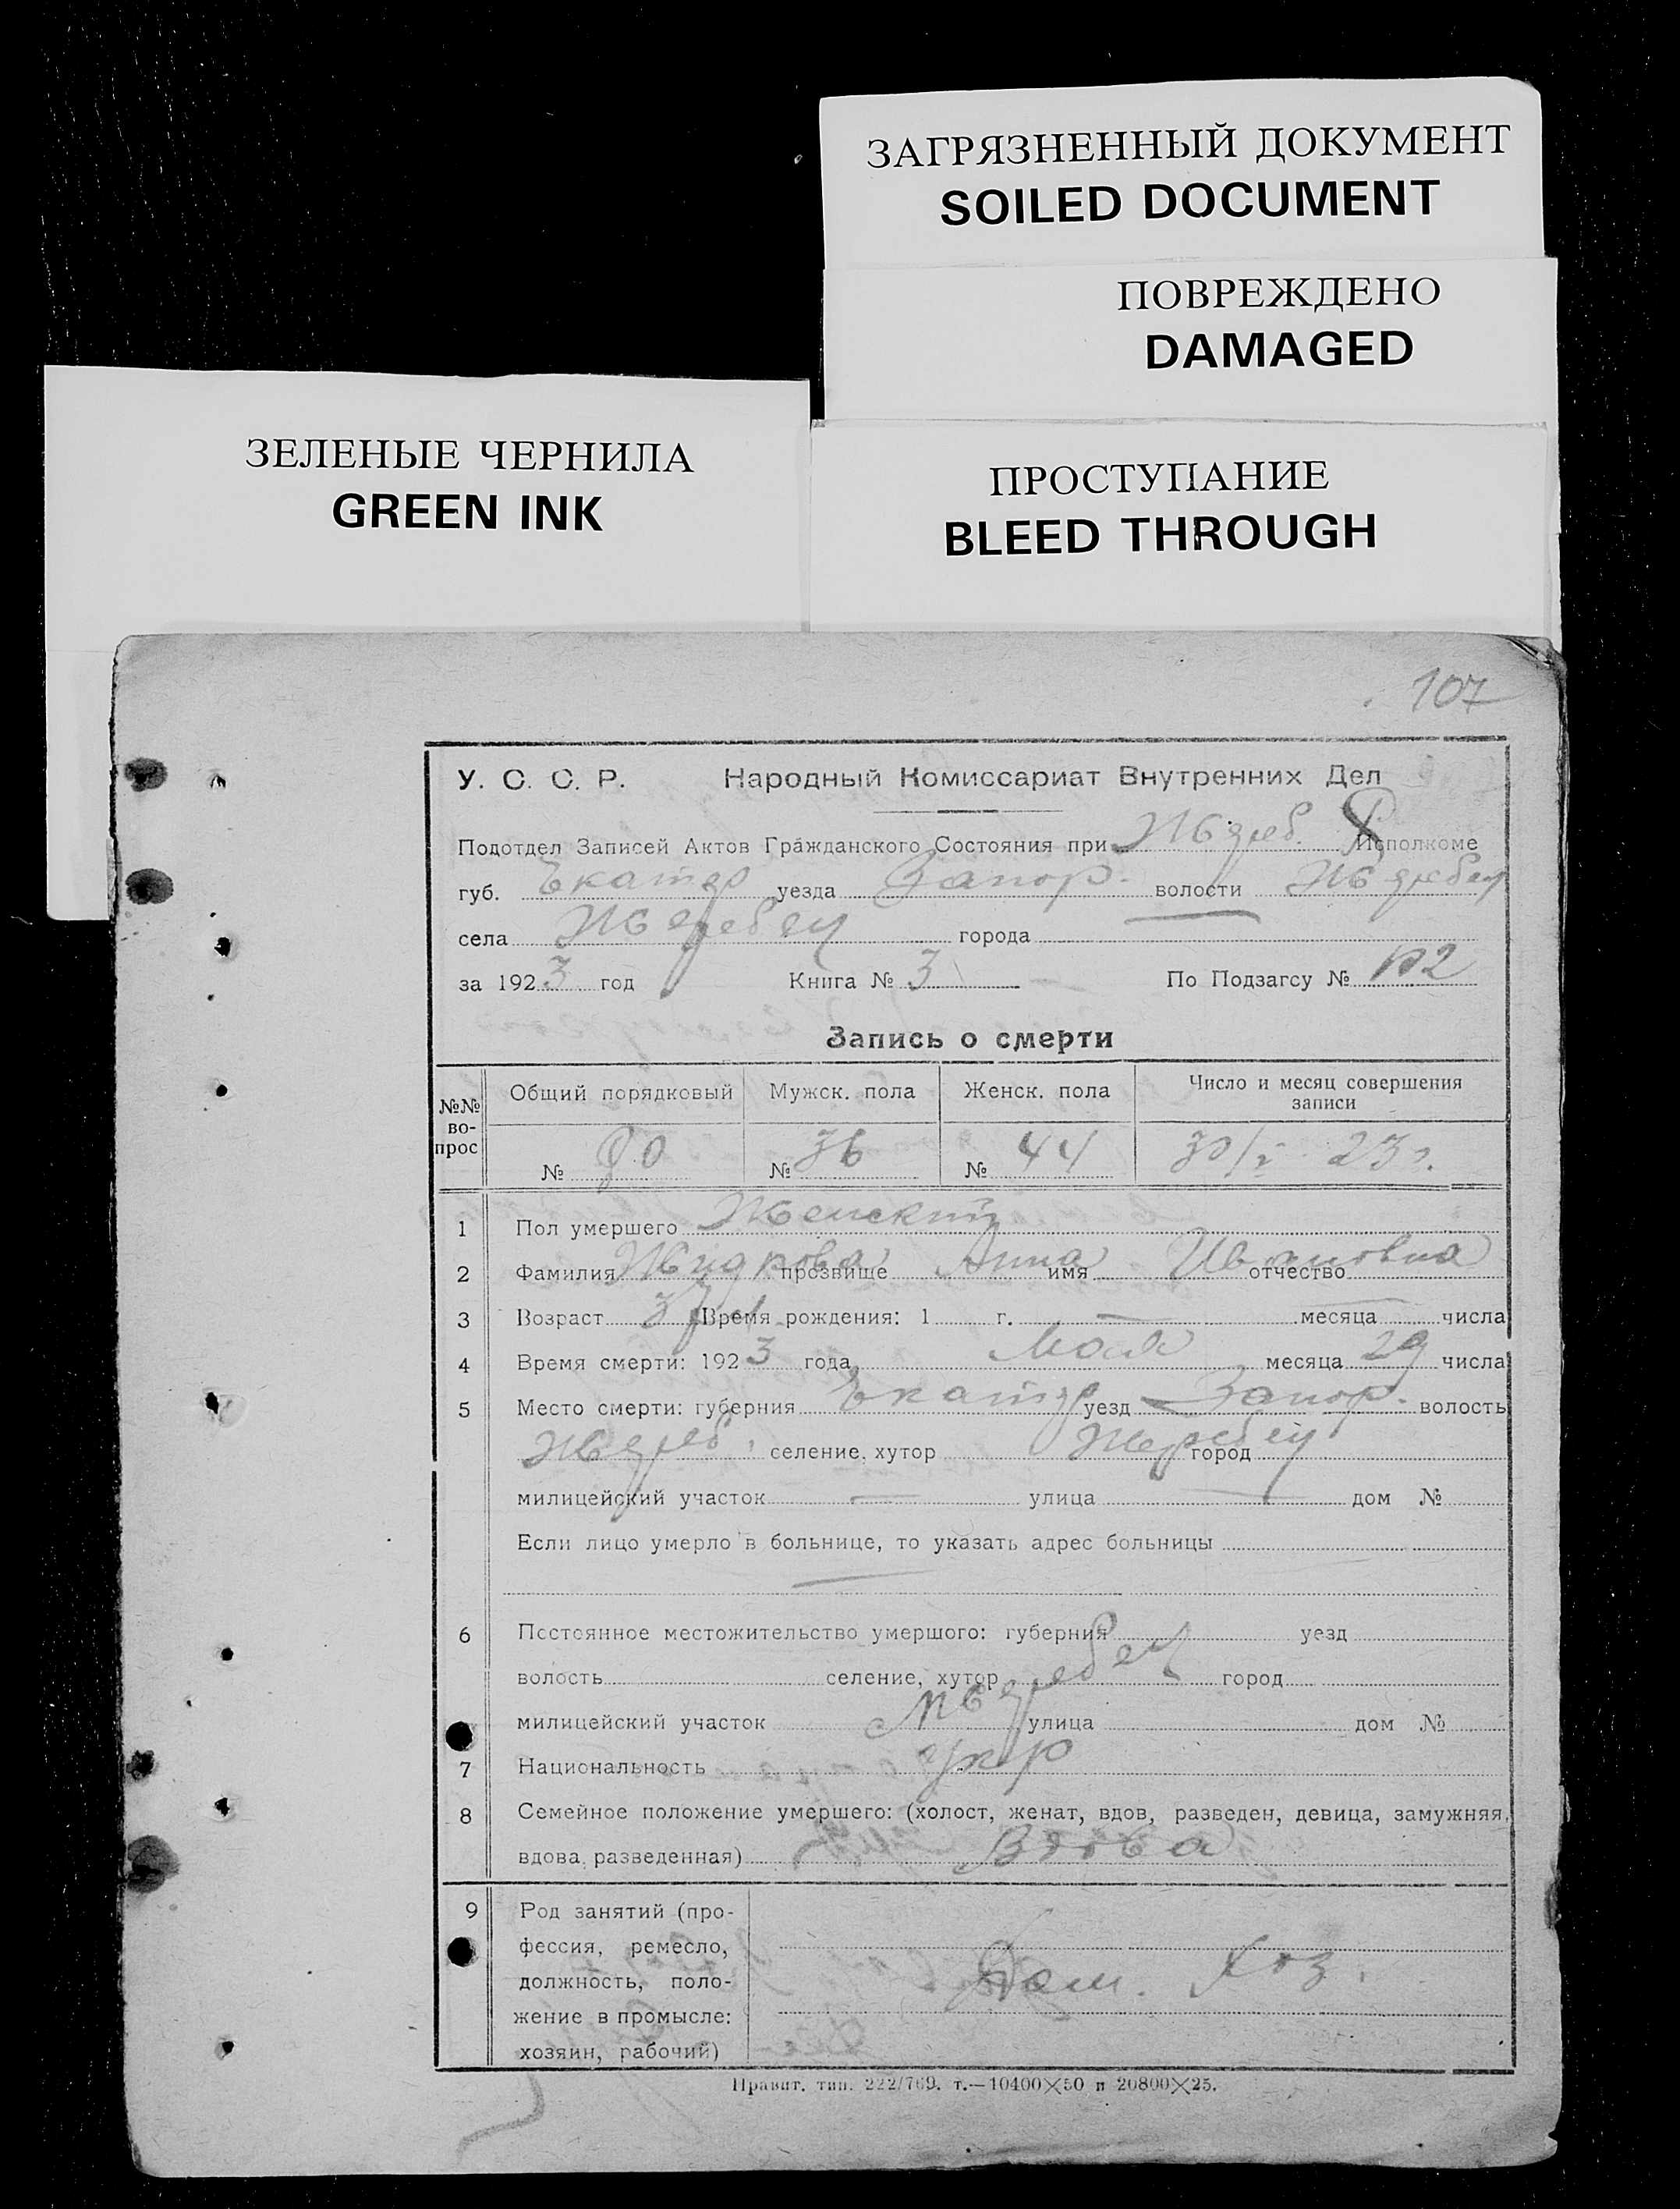 ЗАГРЯЗНЕННЫЙ ДОКУМЕНТ
SOILED DOCUMENT
ПОВРЕЖДЕНО
DAMAGED
ЗЕЛЕНЫЕ ЧЕРНИЛА
GREEN INK
ПРОСТУПАНИЕ
BLEED THROUGH
107
У. С. С. Р. Народный Комиссариат Внутренних Дел
Подотдел Записей Актов Гражданского Состояния при Жереб. Исполкоме
губ. Екатер уезда Запор. волости Жеребец
села Жеребец города
за 1923 год Книга № 3 По Подзагсу №
Запись о смерти
№№ вопрос
Общий порядковый Мужск. пола Женск. пола Число и месяц совершения записи
№ 80 № 36 № 44 30/V 23 г.
1 Пол умершего Женский
2 Фамилия прозвище Анна имя Ивановна отчество
3 Возраст Время рождения: 1 г. — месяца числа
4 Время смерти: 1923 года Мая месяца 29 числа
5 Место смерти: губерния Екатер уезд Запор. волость
Жереб. селение, хутор Жеребец город
милицейский участок — улица — дом №
Если лицо умерло в больнице, то указать адрес больницы
—
6 Постоянное местожительство умершого: губерния уезд
волость селение, хутор Жеребец город
милицейский участок улица дом №
7 Национальность укр
8 Семейное положение умершего: (холост, женат, вдов, разведен, девица, замужняя,
вдова, разведенная) Вдова
9 Род занятий (про-
фессия, ремесло,
должность, поло-
жение в промысле:
хозяин, рабочий)
Дом. Хоз.
Правит. тип. 222/769. т.—10400×50 и 20800×25.